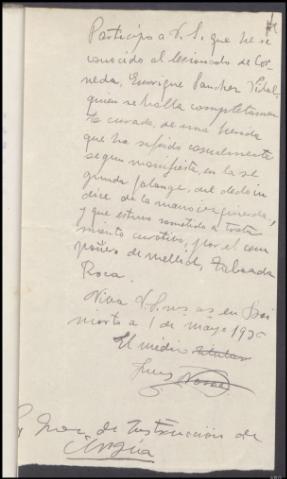 Participo a V. S. que he re
conocido al lesionado de Cor
neda, Enrique Sanchez Vidal,
quien se halla completamen
te curado, de una herida
que ha sufrido casualmente
segun manifiesta, en la se
gunda falange, del dedo in
dice de la mano izquierda,
y que estuvo sometido a trata
miento curativo, por el com
pañero de Mellid, Taboada
Roca.
Viva V. S. ms as en Boi
morto a 1 de mayo 19
El médico titular
Juez de Instrucción de
Arzúa